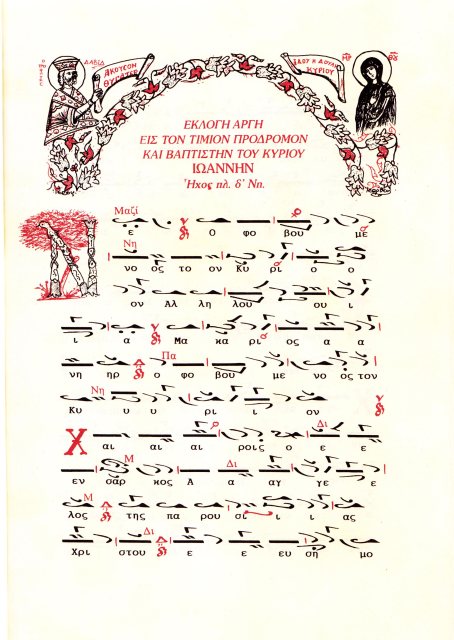 ΔΑΒΙΔ
ΑΚΟΥΣΟΝ ΘΥΓΑΤΕΡ
ΙΔΟΥ Η ΔΟΥΛΗ ΚΥΡΙΟΥ
ΜΡ ΘΥ
ΕΚΛΟΓΗ ΑΡΓΗ
ΕΙΣ ΤΟΝ ΤΙΜΙΟΝ ΠΡΟΔΡΟΜΟΝ
ΚΑΙ ΒΑΠΤΙΣΤΗΝ ΤΟΥ ΚΥΡΙΟΥ
ΙΩΑΝΝΗΝ
Ἦχος πλ. δ' Νη.
Μαζί
ε Ο φο βου με
Νη
νο ος το ον Κυ ρι ο ο
ον Αλ λη λου ου ι
ι α Μα κα ρι ος α α
Πα
νη ηρ ο φο βου με νο ος τον
Νη
Κυ υ υ ρι ι ον
Δι
Χ αι αι αι ροις ο ε ε
Μ Δι
εν σαρ κος Α α αγ γε ε
Μ
λος της πα ρου σι ι ι ας
Δι
Χρι στου ε ε ευ ση μο